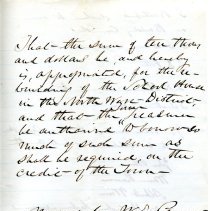 That the sum of ten thous
and dollars be and hereby
is, appropriated, for the re-
building of the School House
in the North West District
and that the Town Treasurer
be authorized to borrow so
much of such sum as
shall be required, on the
credit of the Town